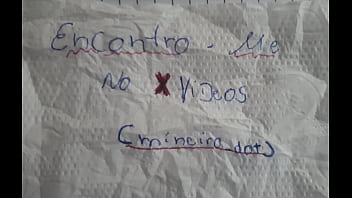 Encontro-Me
No X VIDEOS
(mineira.dot)